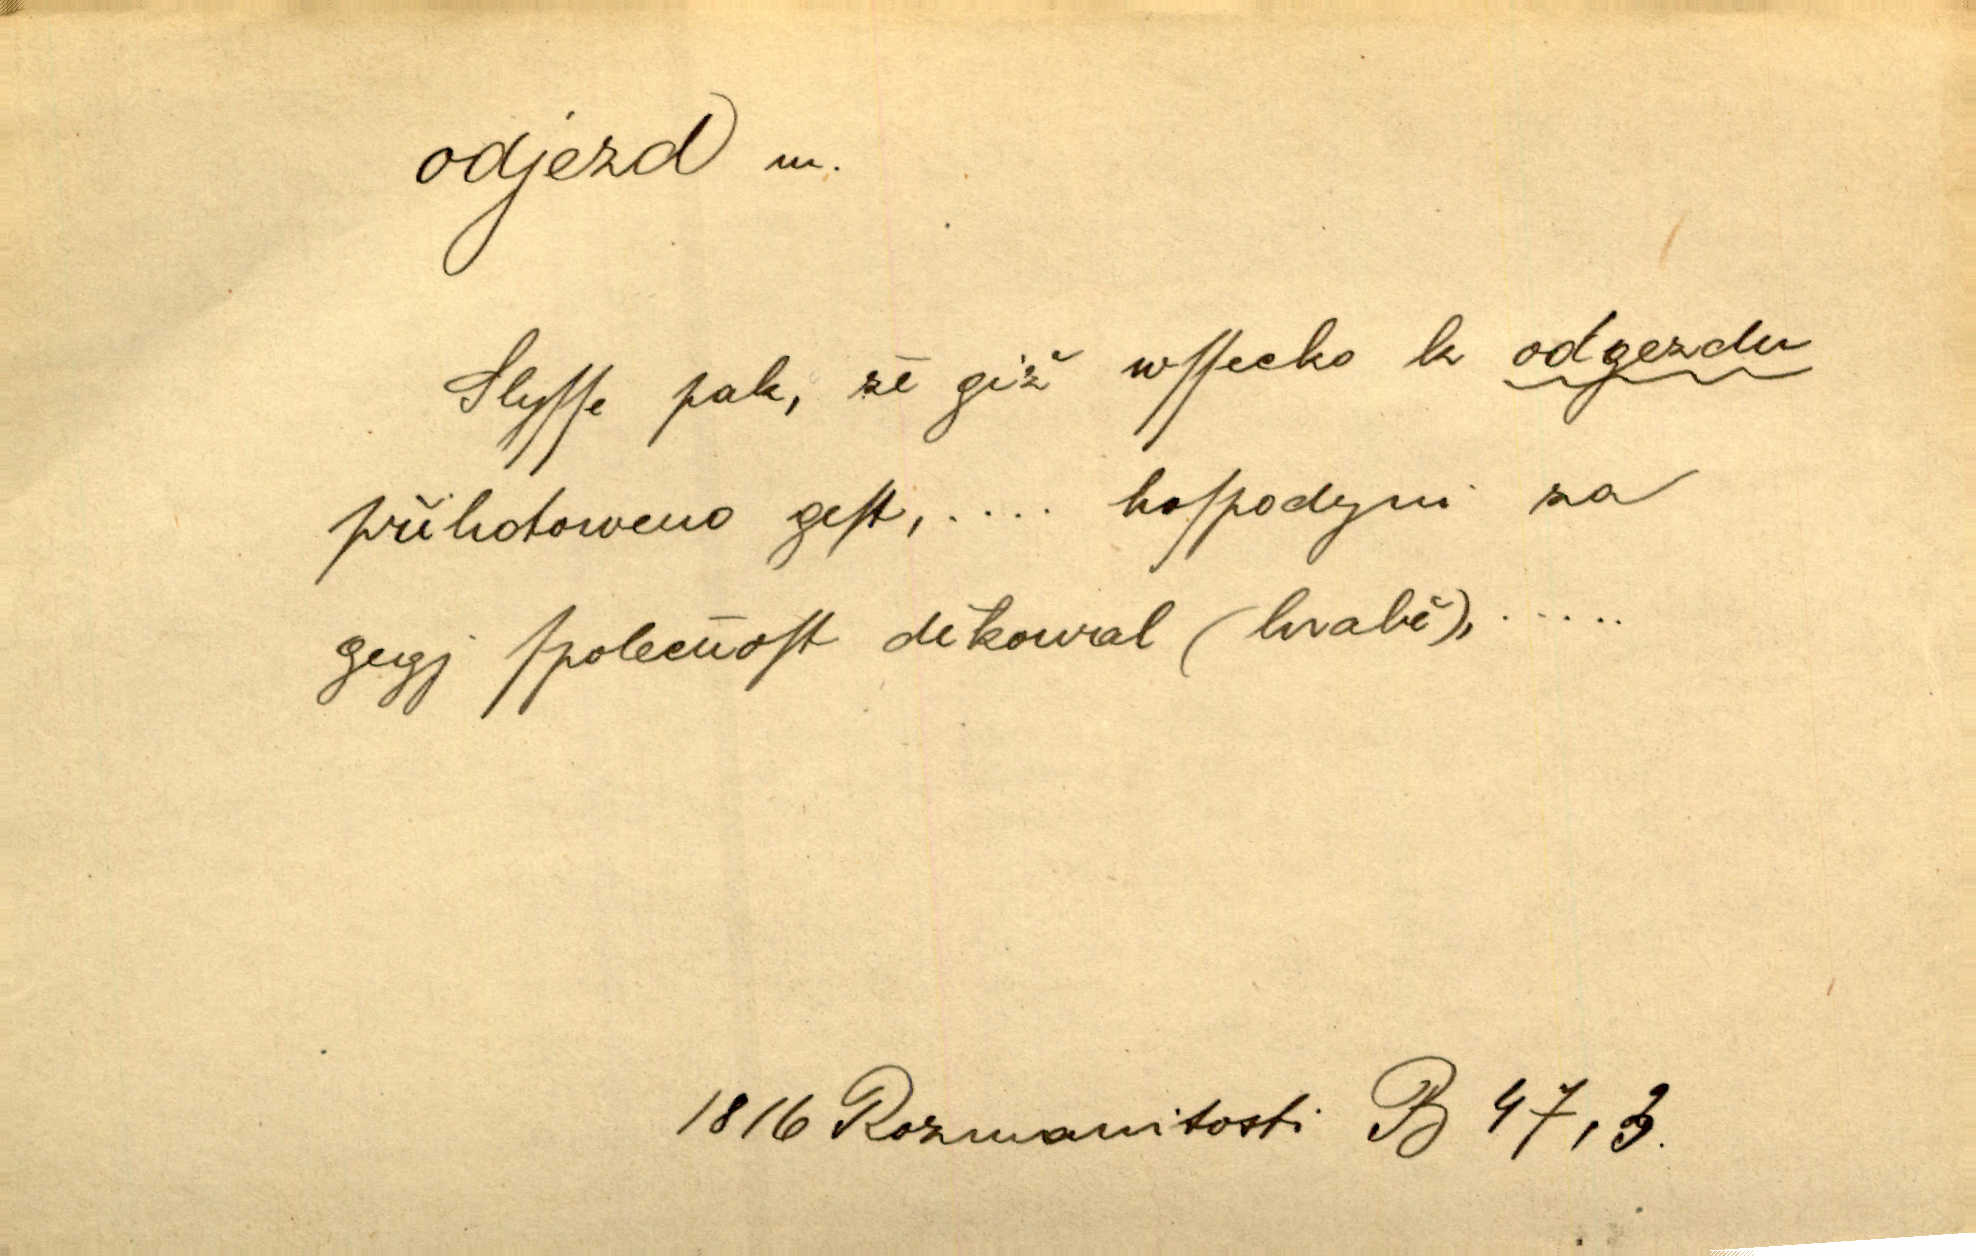 odjezd m.
Slyſſe pak, že giž wſſecko k odgezdu
přihotoweno geſt, .... hoſpodyni za
gegj ſpolečnoſt děkowal (hrabě), .....
1816 Rozmanitosti B 47, 3.